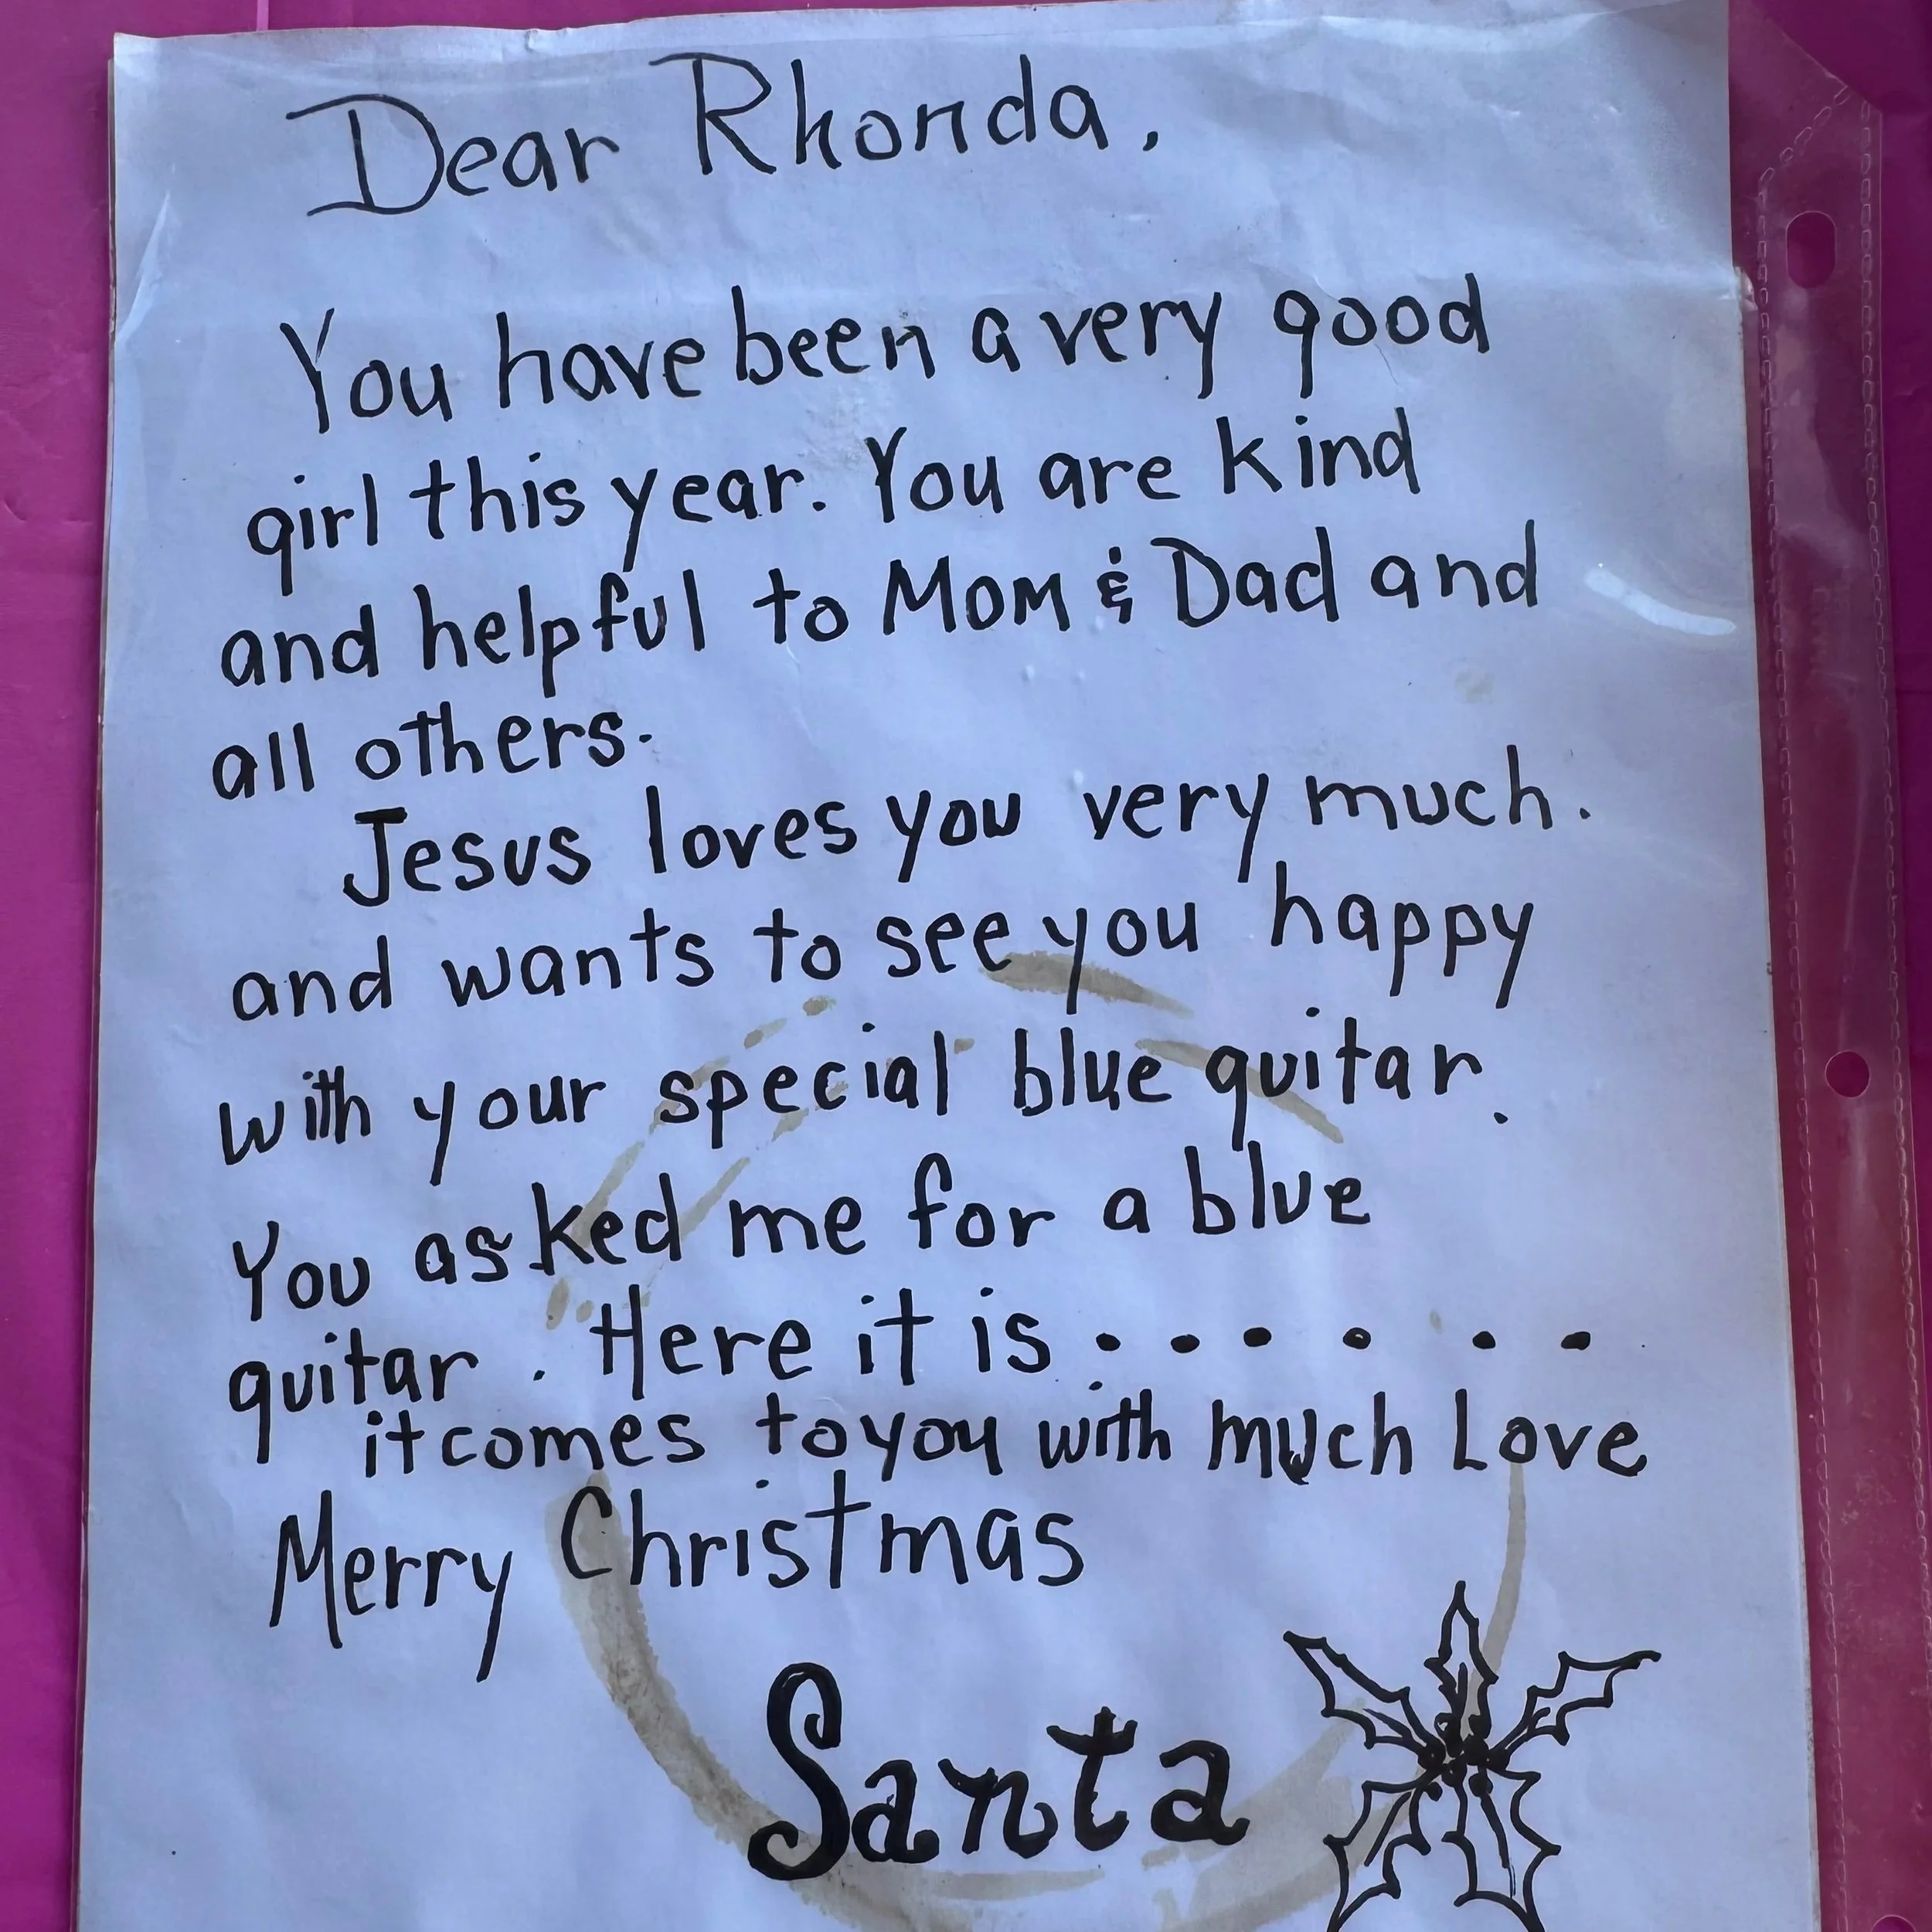 Dear Rhonda,
You have been a very good
girl this year. You are kind
and helpful to Mom & Dad and
all others.
Jesus loves you very much.
and wants to see you happy
with your special blue guitar.
You asked me for a blue
guitar. Here it is . . . . . .
it comes to you with much Love
Merry Christmas
Santa